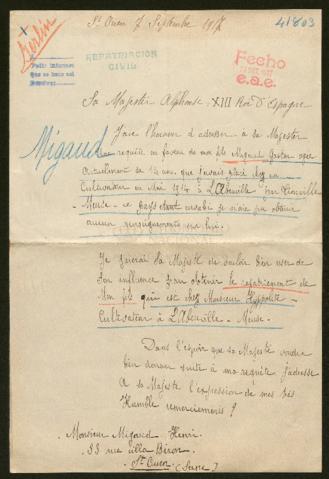 St Ouen 7 Septembre 1917
41803
Berlin
REPATRIACION
CIVIL
Fecho
1917
e.a.e.
Pedir informes
Sa Majester Alphonse XIII Roi d'Espagne
Migaud
J'ai l'honneur d'adresser à sa Majester
une requête en faveur de mon fils Migaud Gaston agée
actuellement de 12 ans, que j'avais placé chez un
Cultivateur en Mai 1914 à L'Abbeville par
Meuse - ce pays étant envahi je n'ai pu obtenir
aucun renseignements sur lui.
Je prierai Sa Majesté de vouloir bien user de
son influence pour obtenir le rapatriement de
Mon fils qui est chez Monsieur Hyppolite
Cultivateur à L'Abbeville - Meuse.
Dans l'espoir que sa Majesté voudra
bien donner suite à ma requête j'adresse
A sa Majesté l'expression de mes très
Humble remerciements !
Monsieur Migaud Henri.
33 rue villa Biron
St Ouen (Seine)